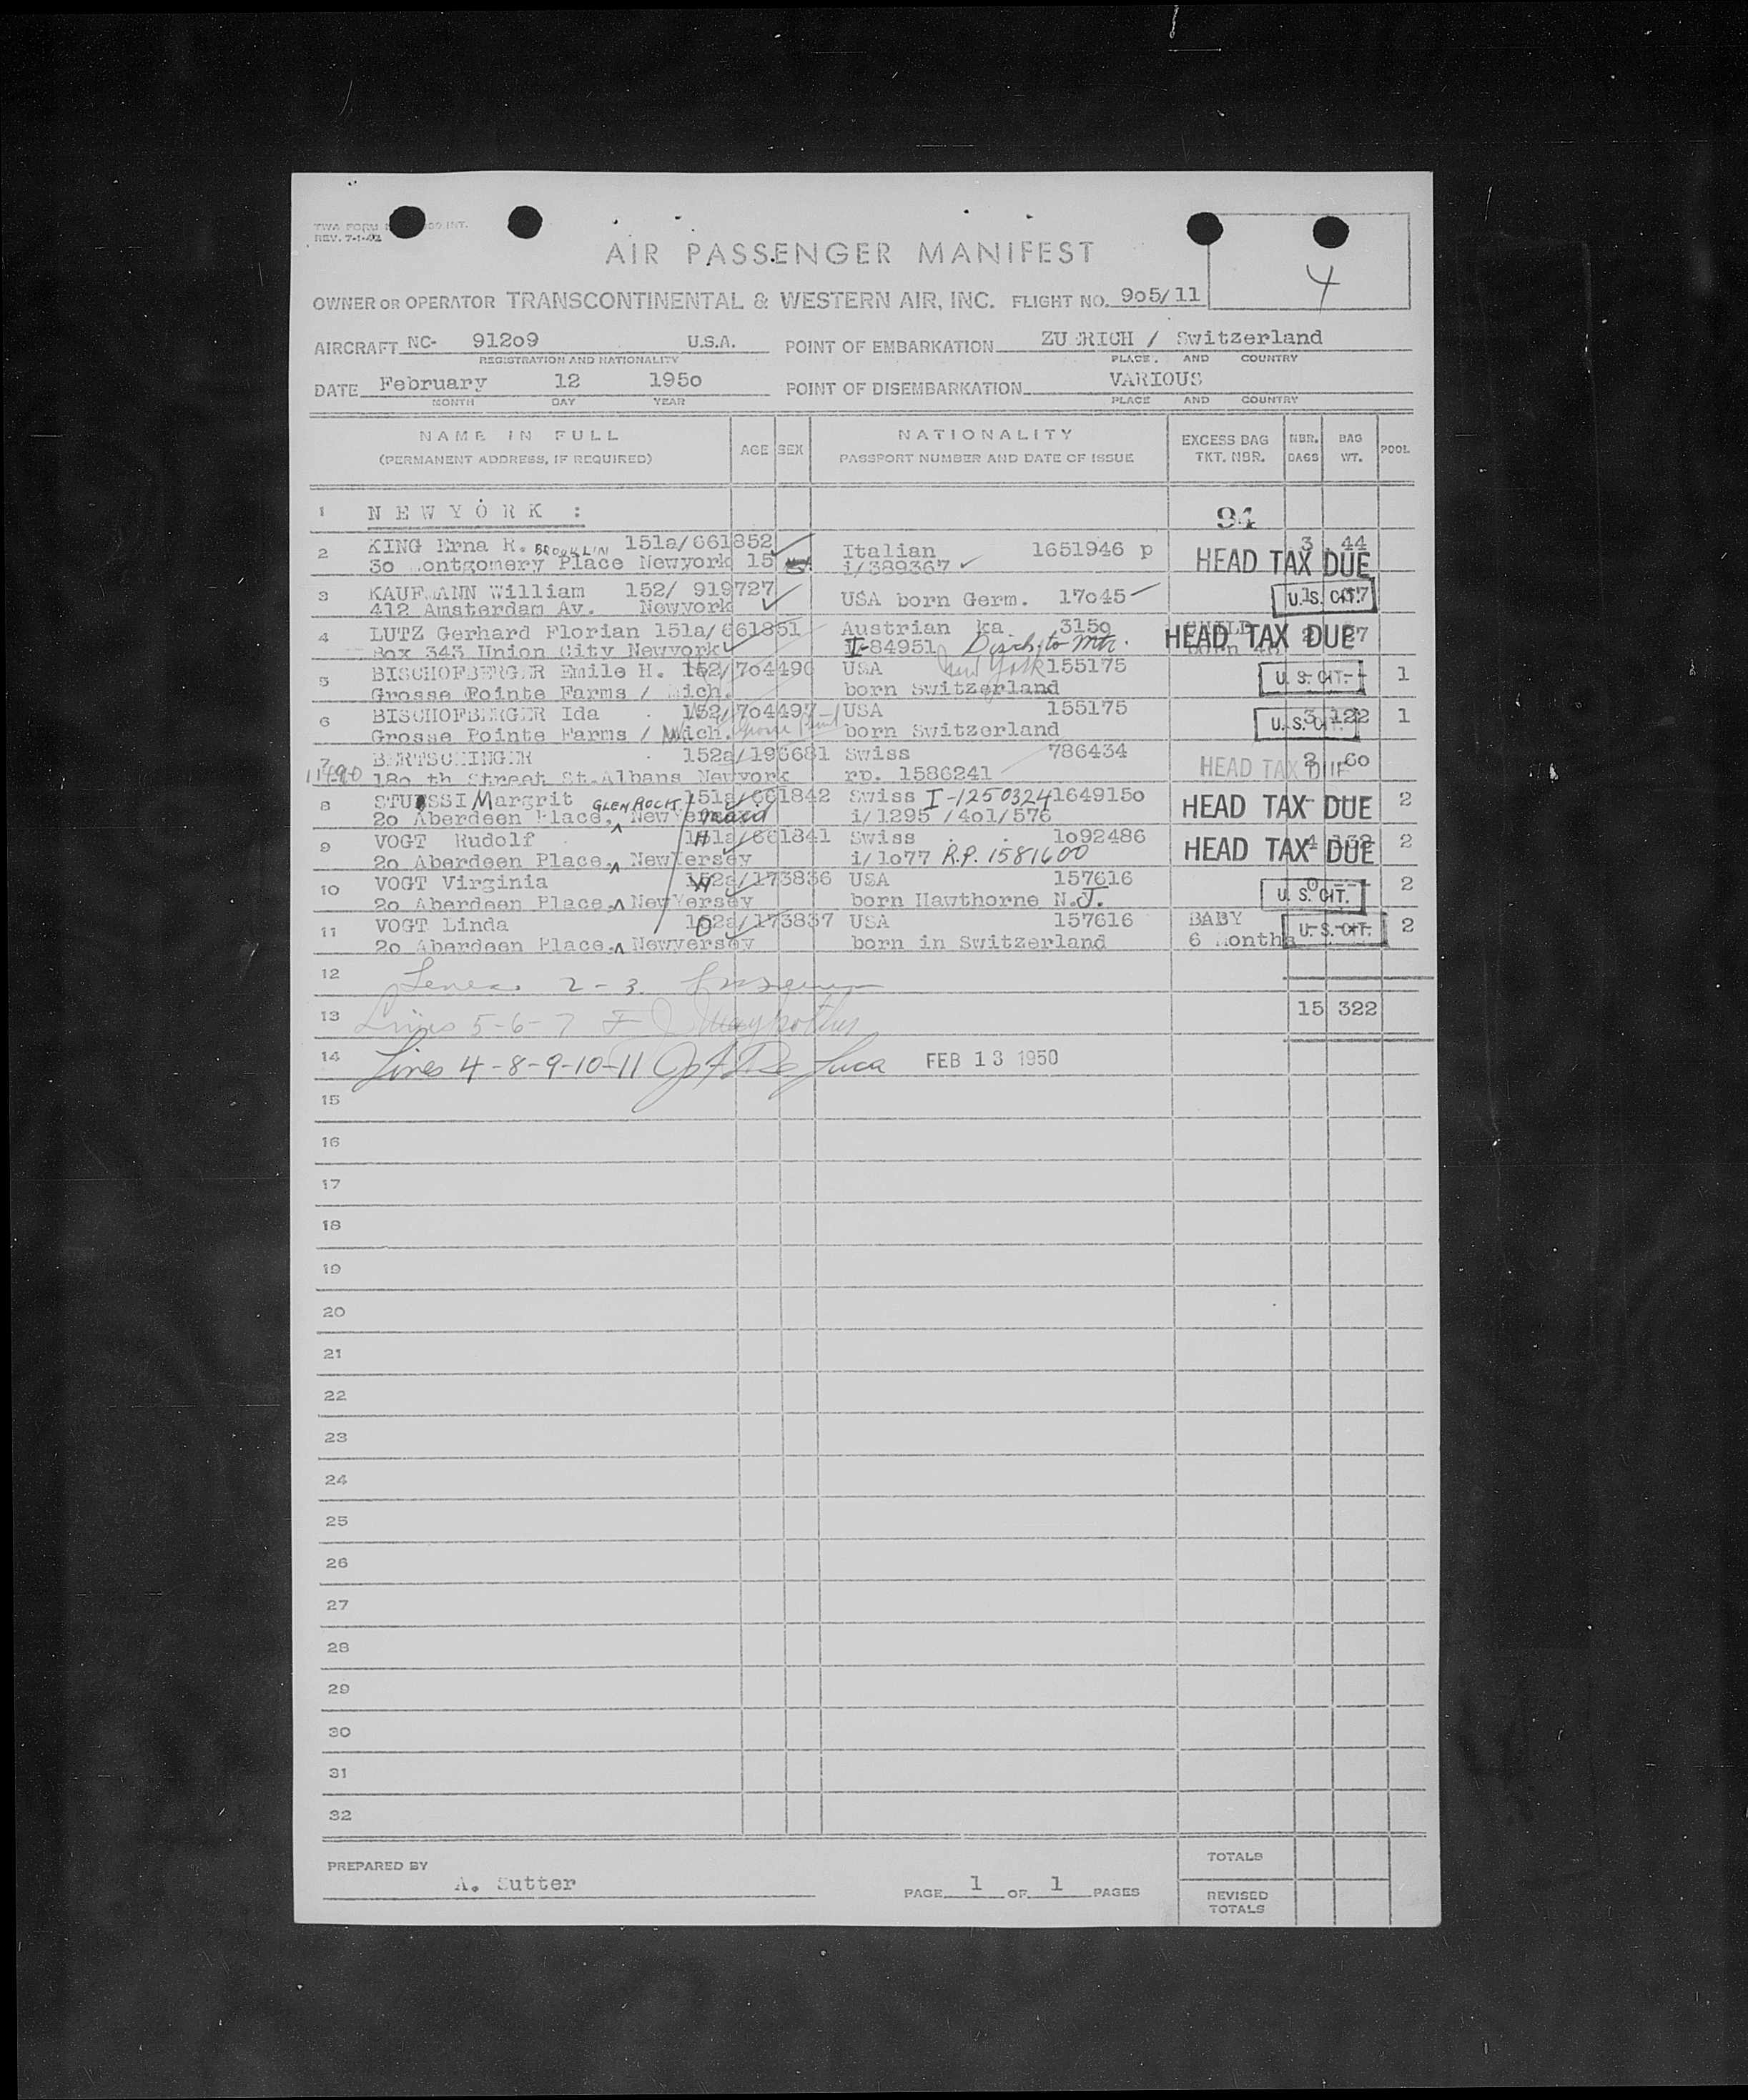 TWA FORM
REV. 7-1-42
AIR PASSENGER MANIFEST
4
OWNER OR OPERATOR TRANSCONTINENTAL & WESTERN AIR, INC. FLIGHT NO. 9o5/11
AIRCRAFT NC- 912o9 U.S.A. POINT OF EMBARKATION ZU RICH / Switzerland
REGISTRATION AND NATIONALITY PLACE AND COUNTRY
DATE February 12 195o POINT OF DISEMBARKATION VARIOUS
MONTH DAY YEAR PLACE AND COUNTRY
NAME IN FULL AGE SEX NATIONALITY EXCESS BAG NBR. BAG POOL
(PERMANENT ADDRESS, IF REQUIRED) PASSPORT NUMBER AND DATE OF ISSUE TKT. NBR. BAGS WT.
1 N E W Y O R K : 94
2 KING Erna R. BROOKLIN 151a/661852 Italian 1651946 p 3 44
3o Montgomery Place Newyork 15 i/389367 HEAD TAX DUE
3 KAUFMANN William 152/ 919727 USA born Germ. 17o45 U.S. CIT.
412 Amsterdam Av. Newyork
4 LUTZ Gerhard Florian 151a/661851 Austrian ka. 315o CHILD HEAD TAX DUE
Box 343 Union City Newyork I-84951 Disch to Mtr.
New York
5 BISCHOFBERGER Emile H. 152/7o4496 USA 155175 U.S. CIT. 1
Grosse Pointe Farms / Mich. born Switzerland
6 BISCHOFBERGER Ida 152/7o4497 USA 155175 U.S. CIT. 3 122 1
Grosse Pointe Farms / Mich. born Switzerland
7 BERTSCHINGER 152a/196681 Swiss 786434 2 60
11490 18o th Street St.Albans Newyork rp. 1586241 HEAD TAX DUE
8 STUESSI Margrit GLEN ROCK 151a/661842 Swiss I-1250324 164915o HEAD TAX DUE 2
2o Aberdeen Place, NewYersey maid i/1295 /4o1/576
9 VOGT Rudolf H 151a/661841 Swiss 1o92486 HEAD TAX DUE 4 132 2
2o Aberdeen Place, NewYersey i/1o77 R.P. 1581600
10 VOGT Virginia W 152a/173836 USA 157616 U.S. CIT. 2
2o Aberdeen Place, NewYersey born Hawthorne N.J.
11 VOGT Linda D 152a/173837 USA 157616 BABY U.S. CIT. 2
2o Aberdeen Place, Newyersey born in Switzerland 6 Months
12 Lines 2-3
13 Lines 5-6-7 15 322
14 Lines 4-8-9-10-11 De Luca FEB 13 1950
15
16
17
18
19
20
21
22
23
24
25
26
27
28
29
30
31
32
PREPARED BY TOTALS
A. Sutter PAGE 1 OF 1 PAGES
REVISED
TOTALS